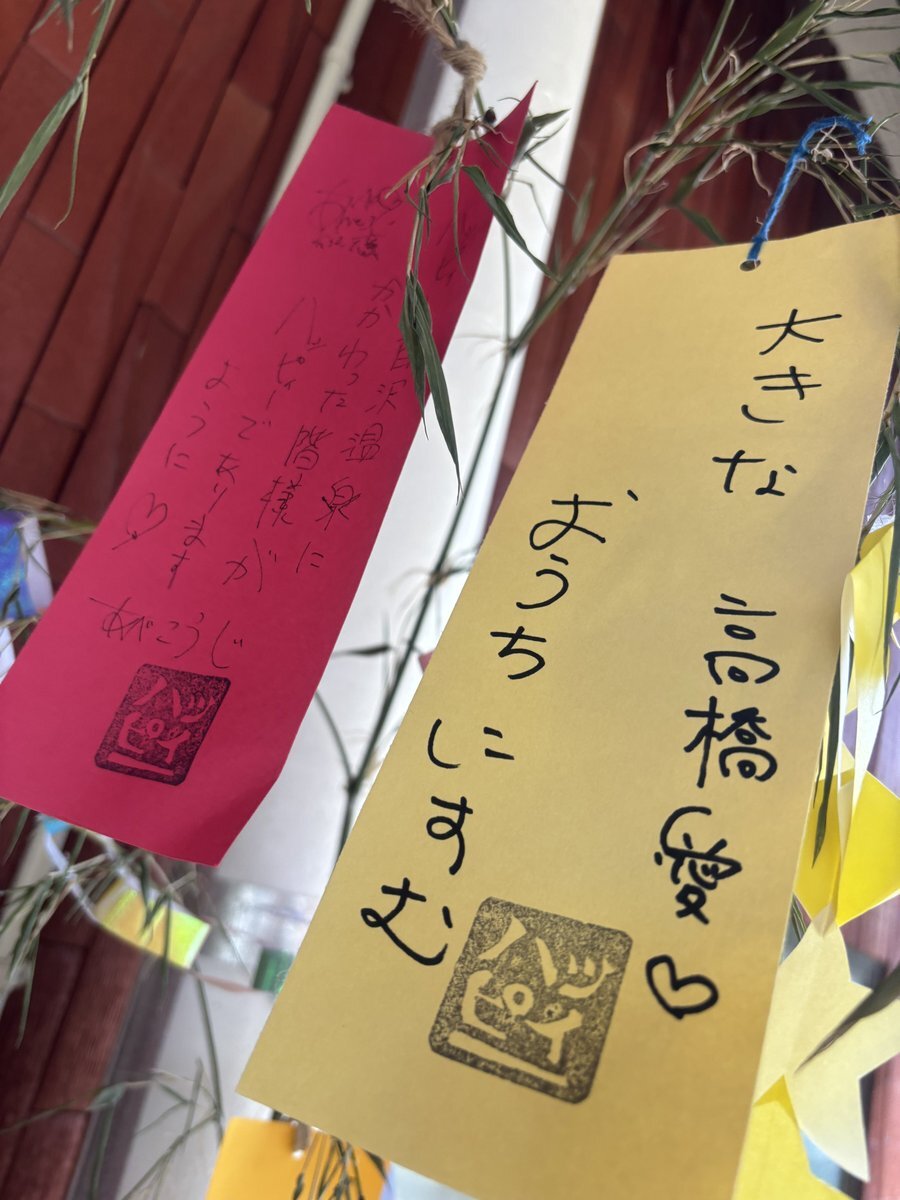 かかわった皆様が
ハッピィーであります
ように♡
あべこうじ
ハッ
ピィ
ー
大きな
おうちにすむ
高橋愛♡
ハッ
ピィ
ー